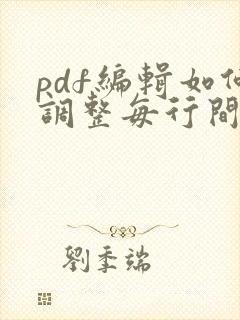 pdf編輯如何
調整每行間
劉季端